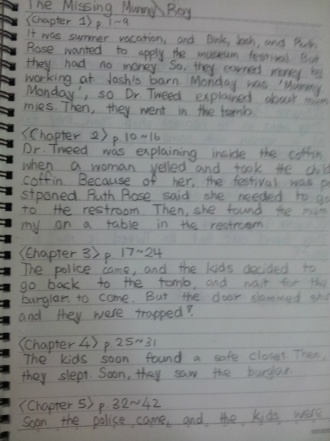 The Missing Mummy Roy
<Chapter 1> p. 1~9
It was summer vacation, and Dink, Josh, and Ruth
Rose wanted to apply the museum festival. But
they had no money. So, they earned money by
working at Josh's barn. Monday was 'Mummy
Monday', so Dr Tweed explained about mum
mies. Then, they went in the tomb.
<Chapter 2> p. 10~16
Dr. Tweed was explaining inside the coffin
when a woman yelled and took the child
coffin. Because of her, the festival was
stponed. Ruth Rose said she needed to go
to the restroom. Then, she found the mum
my on a table in the restroom.
<Chapter 3> p. 17~24
The police came, and the kids decided to
go back to the tomb, and wait for the
burglar to come. But the door slammed shut
and they were trapped?
<Chapter 4> p. 25~31
The kids soon found a safe closet. Then,
they slept. Soon, they saw the burglar.
<Chapter 5> p. 32~42
Soon the police came, and the kids were